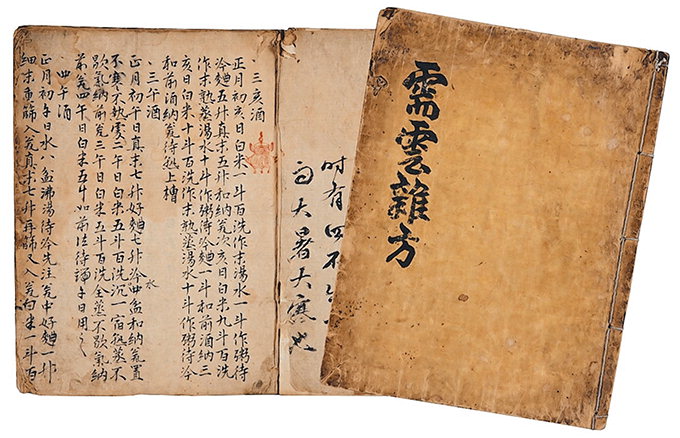 、三亥酒
正月初亥日白米一斗百洗作末湯水一斗作粥待
冷麯五升真末五升和納瓮次亥日白米九斗百洗
作末熟蒸湯水十斗作粥待冷麯一斗和前酒納三
亥日白米十斗百洗作末熟蒸湯水十斗作粥待冷
和前酒納瓮待熟上槽
、三午酒
正月初午日真末七升好麯七升冷水四盆和納瓮置
不寒不熱處二午日白米五斗百洗沉一宿熟蒸不
歇氣納前瓮三午日白米五斗百洗全蒸不歇氣納
前瓮四午日白米五斗如前法待端午日用之
、四午酒
正月初午日水八盆沸湯待冷先注瓮中好麯一升
細末重篩入瓮真末七升再篩又入瓮白米一斗百
时有四不
大暑大寒也
需雲雜方